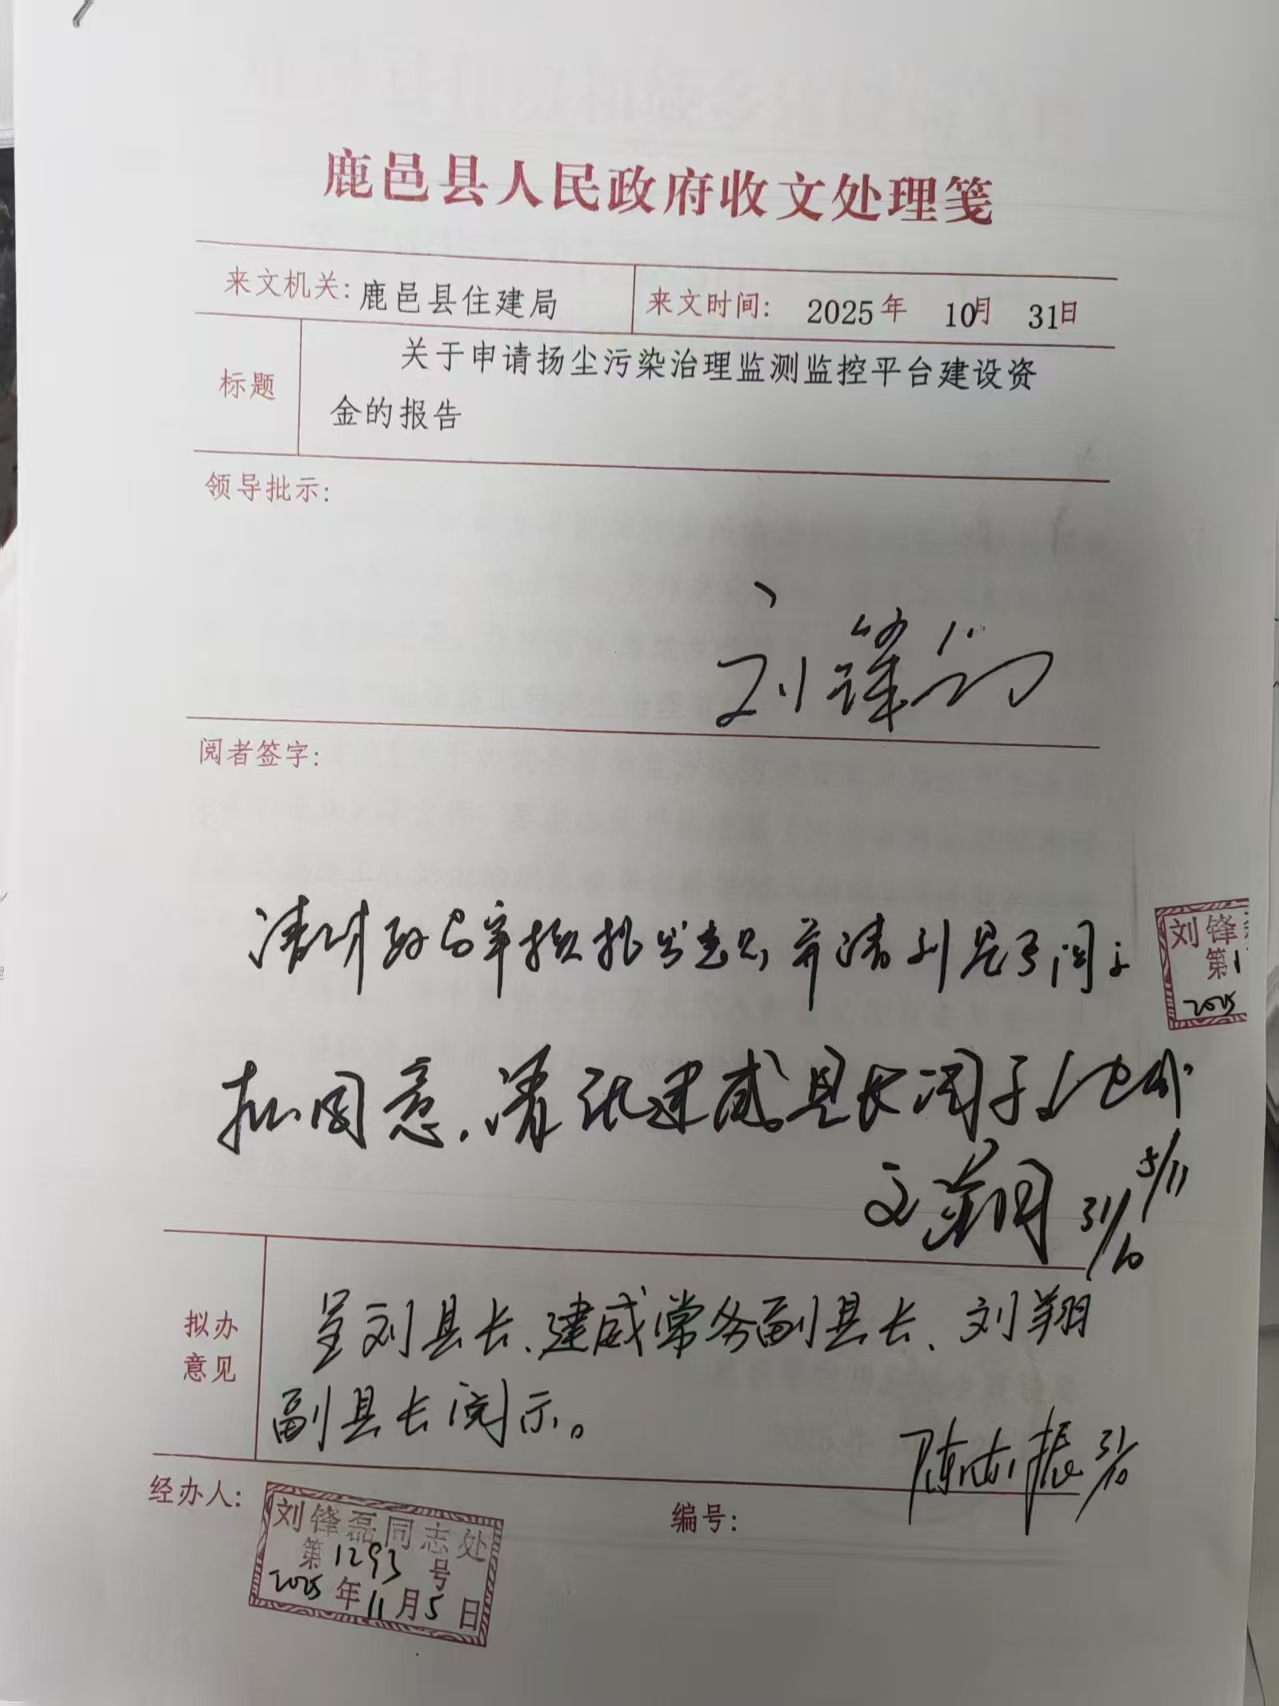 鹿邑县人民政府收文处理笺
来文机关: 鹿邑县住建局
来文时间: 2025年 10月 31日
标题
关于申请扬尘污染治理监测监控平台建设资
金的报告
领导批示:
刘锋
阅者签字:
请财政局审核提出意见,并请刘县长阅示
刘锋
第1
2025
拟同意,请张建威县长阅示
5/11
文 31/10
拟办
意见
呈刘县长、建威常务副县长、刘翔
副县长阅示。
陈志振 31/10
经办人:
刘锋磊同志处
第1293号
2025年11月5日
编号: